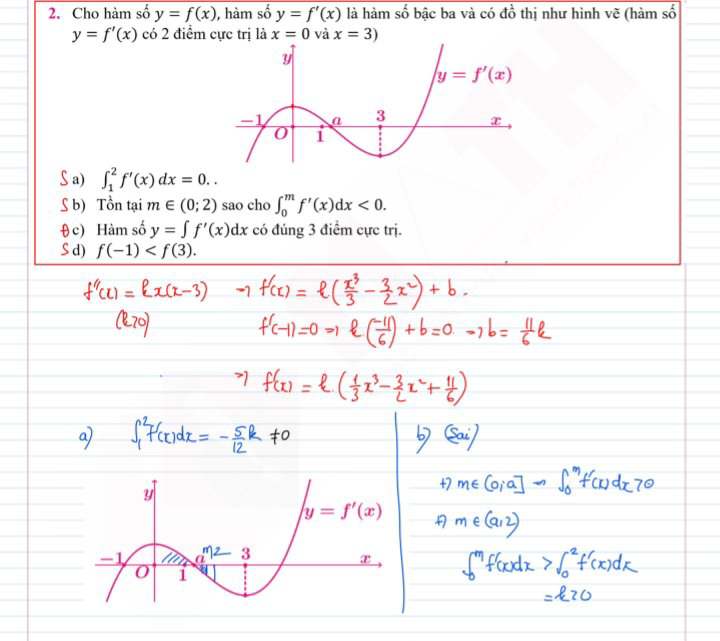 2. Cho hàm số y = f(x), hàm số y = f'(x) là hàm số bậc ba và có đồ thị như hình vẽ (hàm số
y = f'(x) có 2 điểm cực trị là x = 0 và x = 3)
y
y = f'(x)
-1 O 1 a 3 x
S a) ∫₁² f'(x) dx = 0. .
S b) Tồn tại m ∈ (0; 2) sao cho ∫₀ᵐ f'(x)dx < 0.
Đ c) Hàm số y = ∫ f'(x)dx có đúng 3 điểm cực trị.
S d) f(−1) < f(3).
f''(x) = kx(x−3) → f'(x) = k(x³/3 − 3/2 x²) + b.
(k>0) f'(−1)=0 → k(−11/6) + b = 0 → b = 11/6 k
→ f'(x) = k.(1/3 x³ − 3/2 x² + 11/6)
a) ∫₁² f'(x)dx = −5/12 k ≠ 0
b) (Sai)
+) m ∈ (0; a] → ∫₀ᵐ f'(x)dx > 0
+) m ∈ (a; 2)
∫₀ᵐ f'(x)dx > ∫₀² f'(x)dx
= k > 0
y
y = f'(x)
-1 O 1 a m 2 3 x